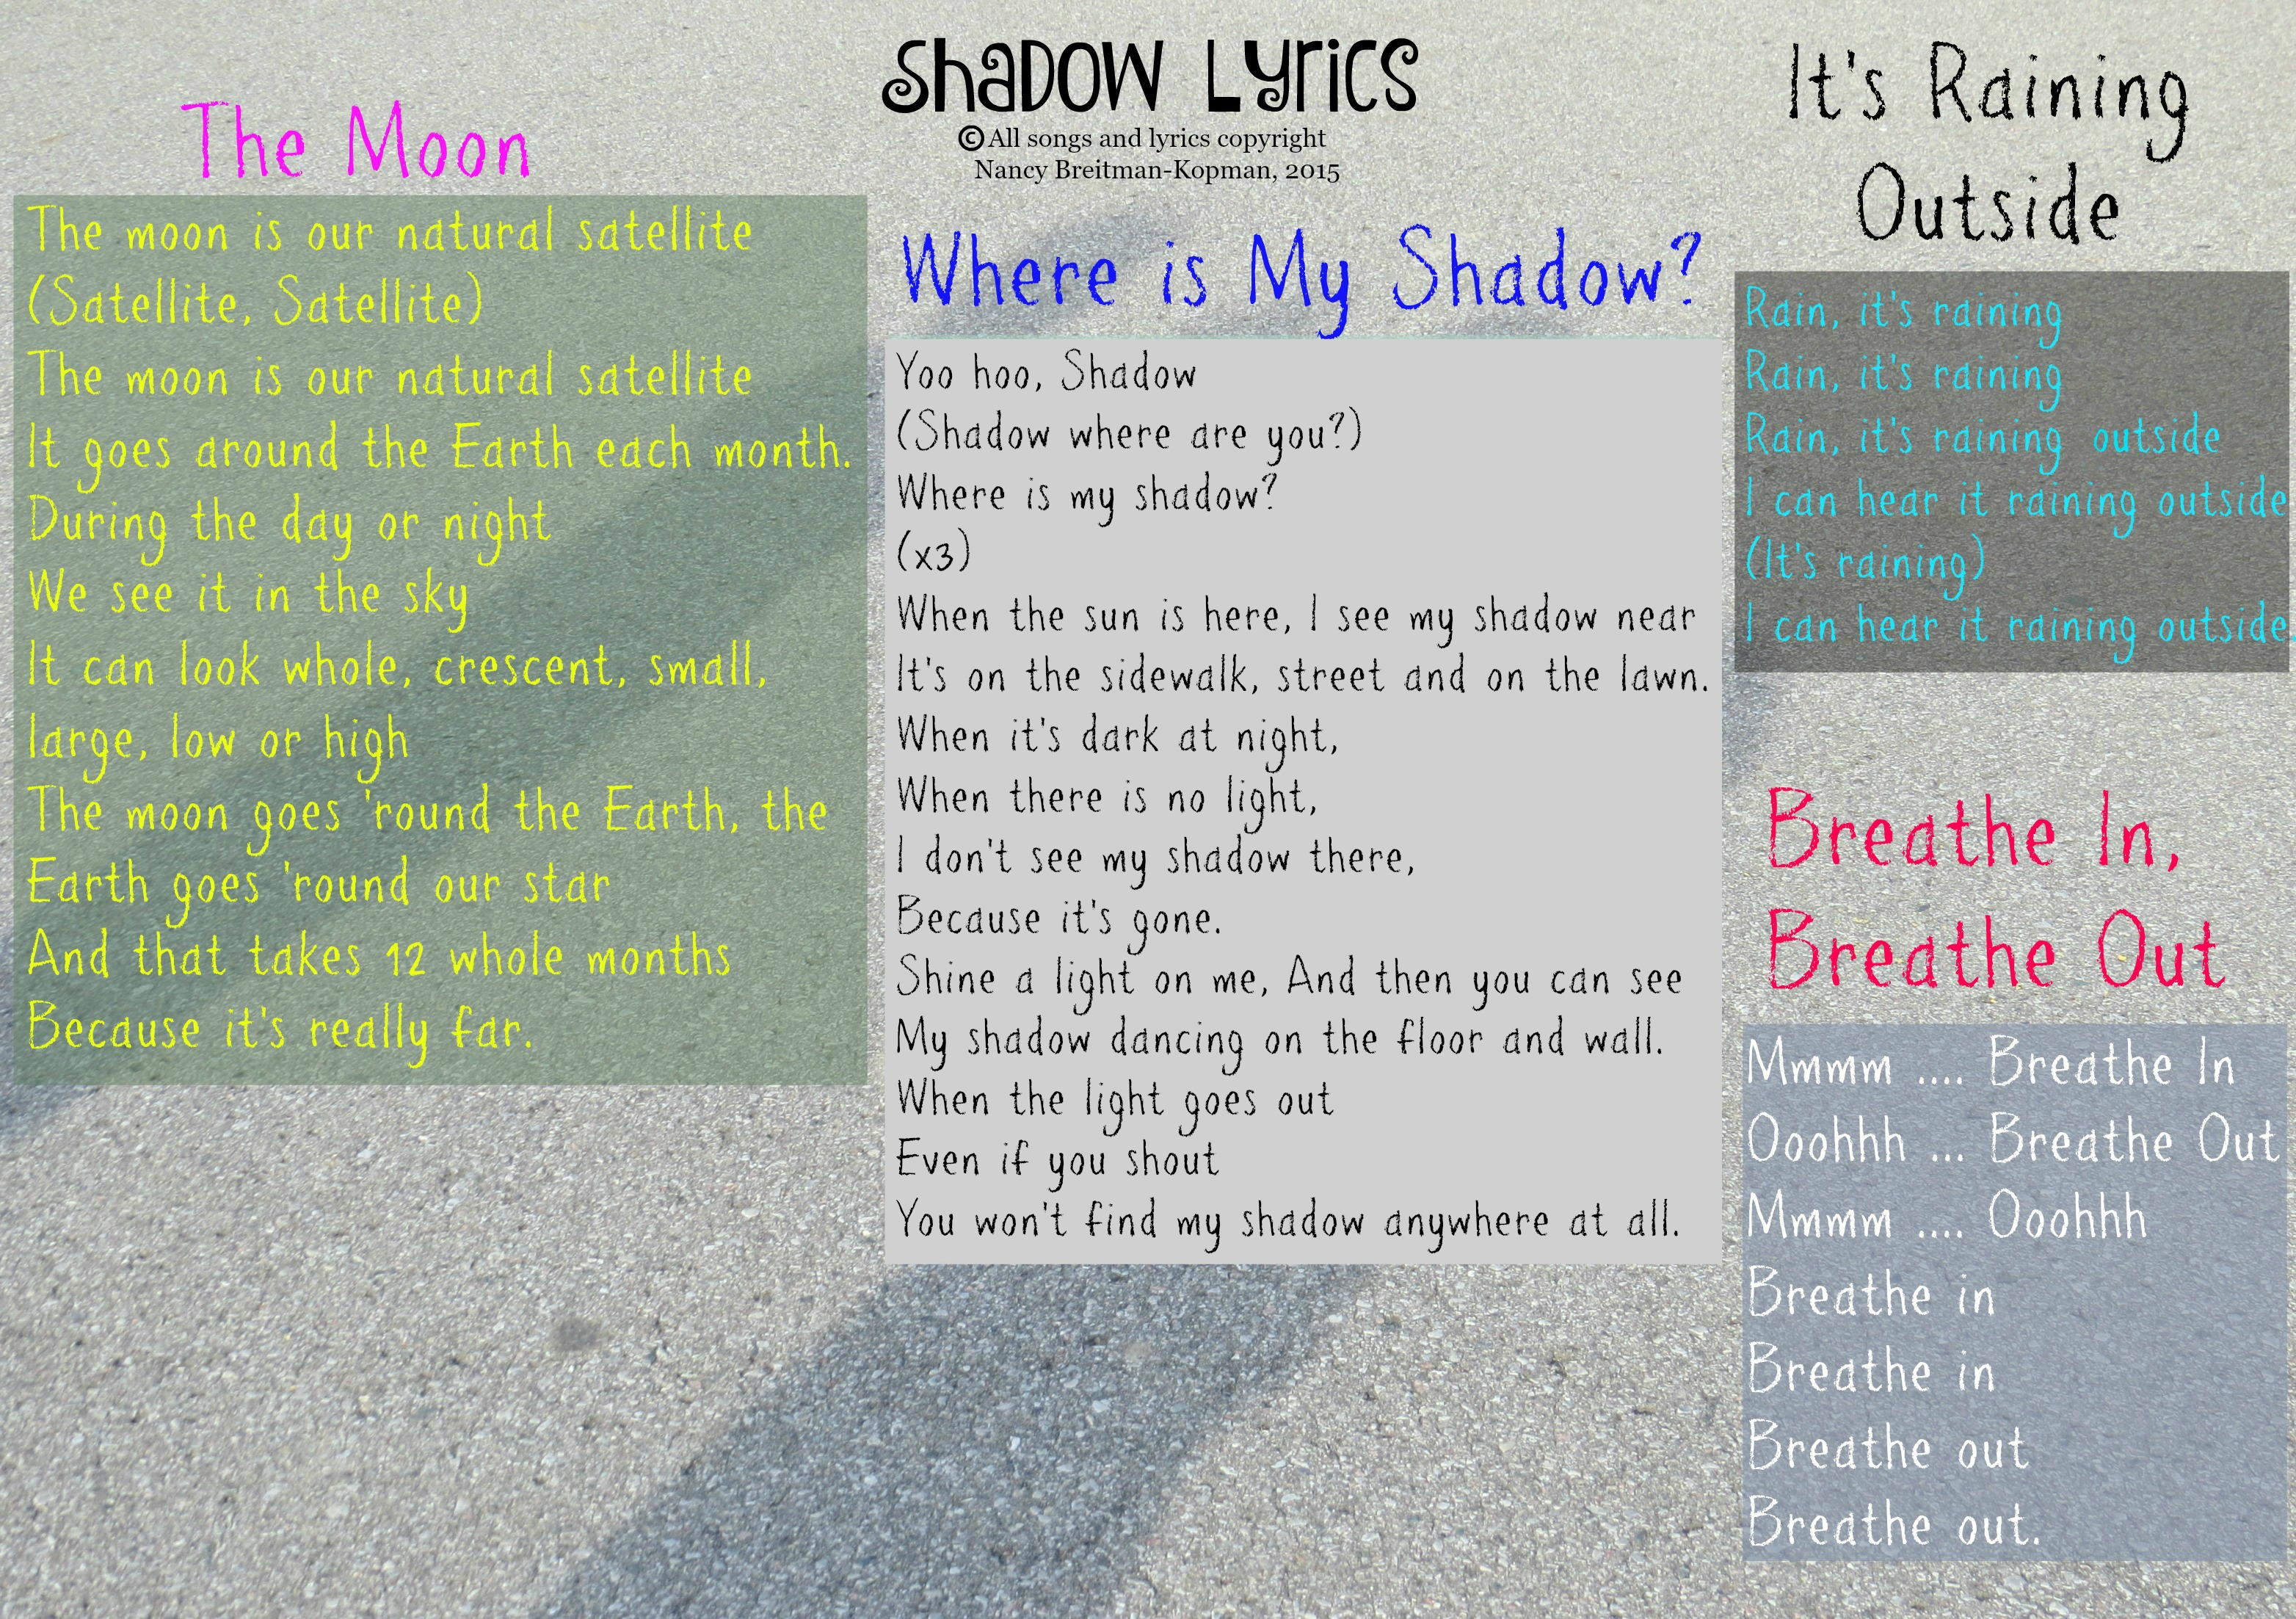 Shadow Lyrics
© All songs and lyrics copyright
Nancy Breitman-Kopman, 2015
The Moon
The moon is our natural satellite
(Satellite, Satellite)
The moon is our natural satellite
It goes around the Earth each month.
During the day or night
We see it in the sky
It can look whole, crescent, small,
large, low or high
The moon goes 'round the Earth, the
Earth goes 'round our star
And that takes 12 whole months
Because it's really far.
Where is My Shadow?
Yoo hoo, Shadow
(Shadow where are you?)
Where is my shadow?
(x3)
When the sun is here, I see my shadow near
It's on the sidewalk, street and on the lawn.
When it's dark at night,
When there is no light,
I don't see my shadow there,
Because it's gone.
Shine a light on me, And then you can see
My shadow dancing on the floor and wall.
When the light goes out
Even if you shout
You won't find my shadow anywhere at all.
It's Raining
Outside
Rain, it's raining
Rain, it's raining
Rain, it's raining outside
I can hear it raining outside
(It's raining)
I can hear it raining outside
Breathe In,
Breathe Out
Mmmm .... Breathe In
Ooohhh ... Breathe Out
Mmmm .... Ooohhh
Breathe in
Breathe in
Breathe out
Breathe out.